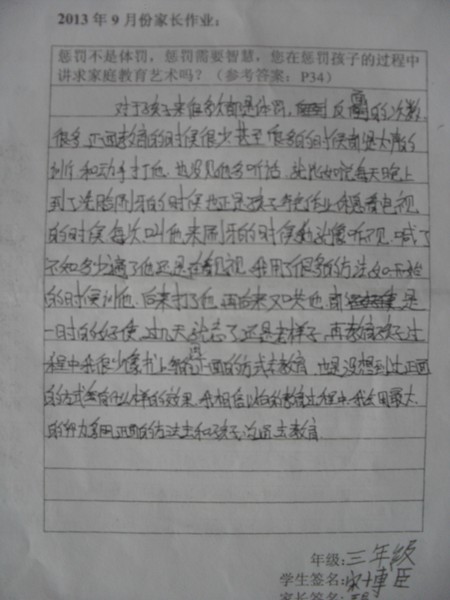 2013年9月份家长作业：
惩罚不是体罚，惩罚需要智慧，您在惩罚孩子的过程中
讲求家庭教育艺术吗？（参考答案：P34）
对于孩子来很多次都是体罚， 反 的次数
很多 正面教育的时候很少甚至很多的时候都是大声的
训斥和动手打他，也没见他多听话，就比如说每天晚上
到了洗脸刷牙的时候也正是孩子 作业 看电视
的时候每次叫他来刷牙的时候 像 听见 喊了
不知多少遍了他还是在看电视，我用了很多的方法如开始
的时候训他，后来打了他，再后来又哄他 是
一时的好使，过几天就忘了还是老样子，再教育孩子过
程中我很少像书上 正面的方式去教育，也是没想到让正面
的方式会有什么样的效果，我相信以后的 过程中我会用最大
的努力多用正面的方法去和孩子沟通去教育
年级：三年级
学生签名：宋博臣
家长签名：